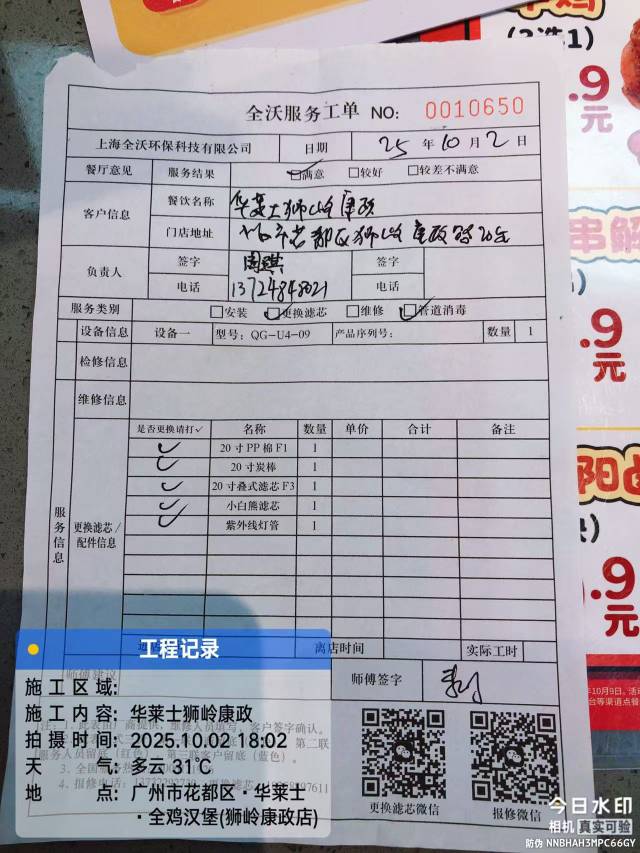 (3选1)
.9
元
全沃服务工单 NO: 0010650
上海全沃环保科技有限公司 日期 25 年 10 月 2 日
餐厅意见 服务结果 ☑满意 □较好 □较差不满意
客户信息 餐饮名称 华莱士狮岭康政
门店地址 狮岭康政路
负责人 签字 周琪 签字
电话 13724848021 电话
服务类别 □安装 ☑更换滤芯 □维修 ☑管道消毒
设备信息 设备一 型号: QG-U4-09 产品序列号: 数量 1
检修信息
维修信息
服务信息
更换滤芯/配件信息
是否更换请打✓ 名称 数量 单价 合计 备注
✓ 20寸PP棉F1 1
✓ 20寸炭棒 1
✓ 20寸叠式滤芯F3 1
✓ 小白熊滤芯 1
✓ 紫外线灯管 1
离店时间 实际工时
师傅建议
师傅签字
更换滤芯微信 报修微信
串解
.9
元
阳
.9
元
年10月9日。活动
工程记录
施工区域:
施工内容: 华莱士狮岭康政
拍摄时间: 2025.10.02 18:02
天气: 多云 31℃
地点: 广州市花都区·华莱士
·全鸡汉堡(狮岭康政店)
今日水印
相机 真实可验
防伪 NNBHAH3MPC66GY